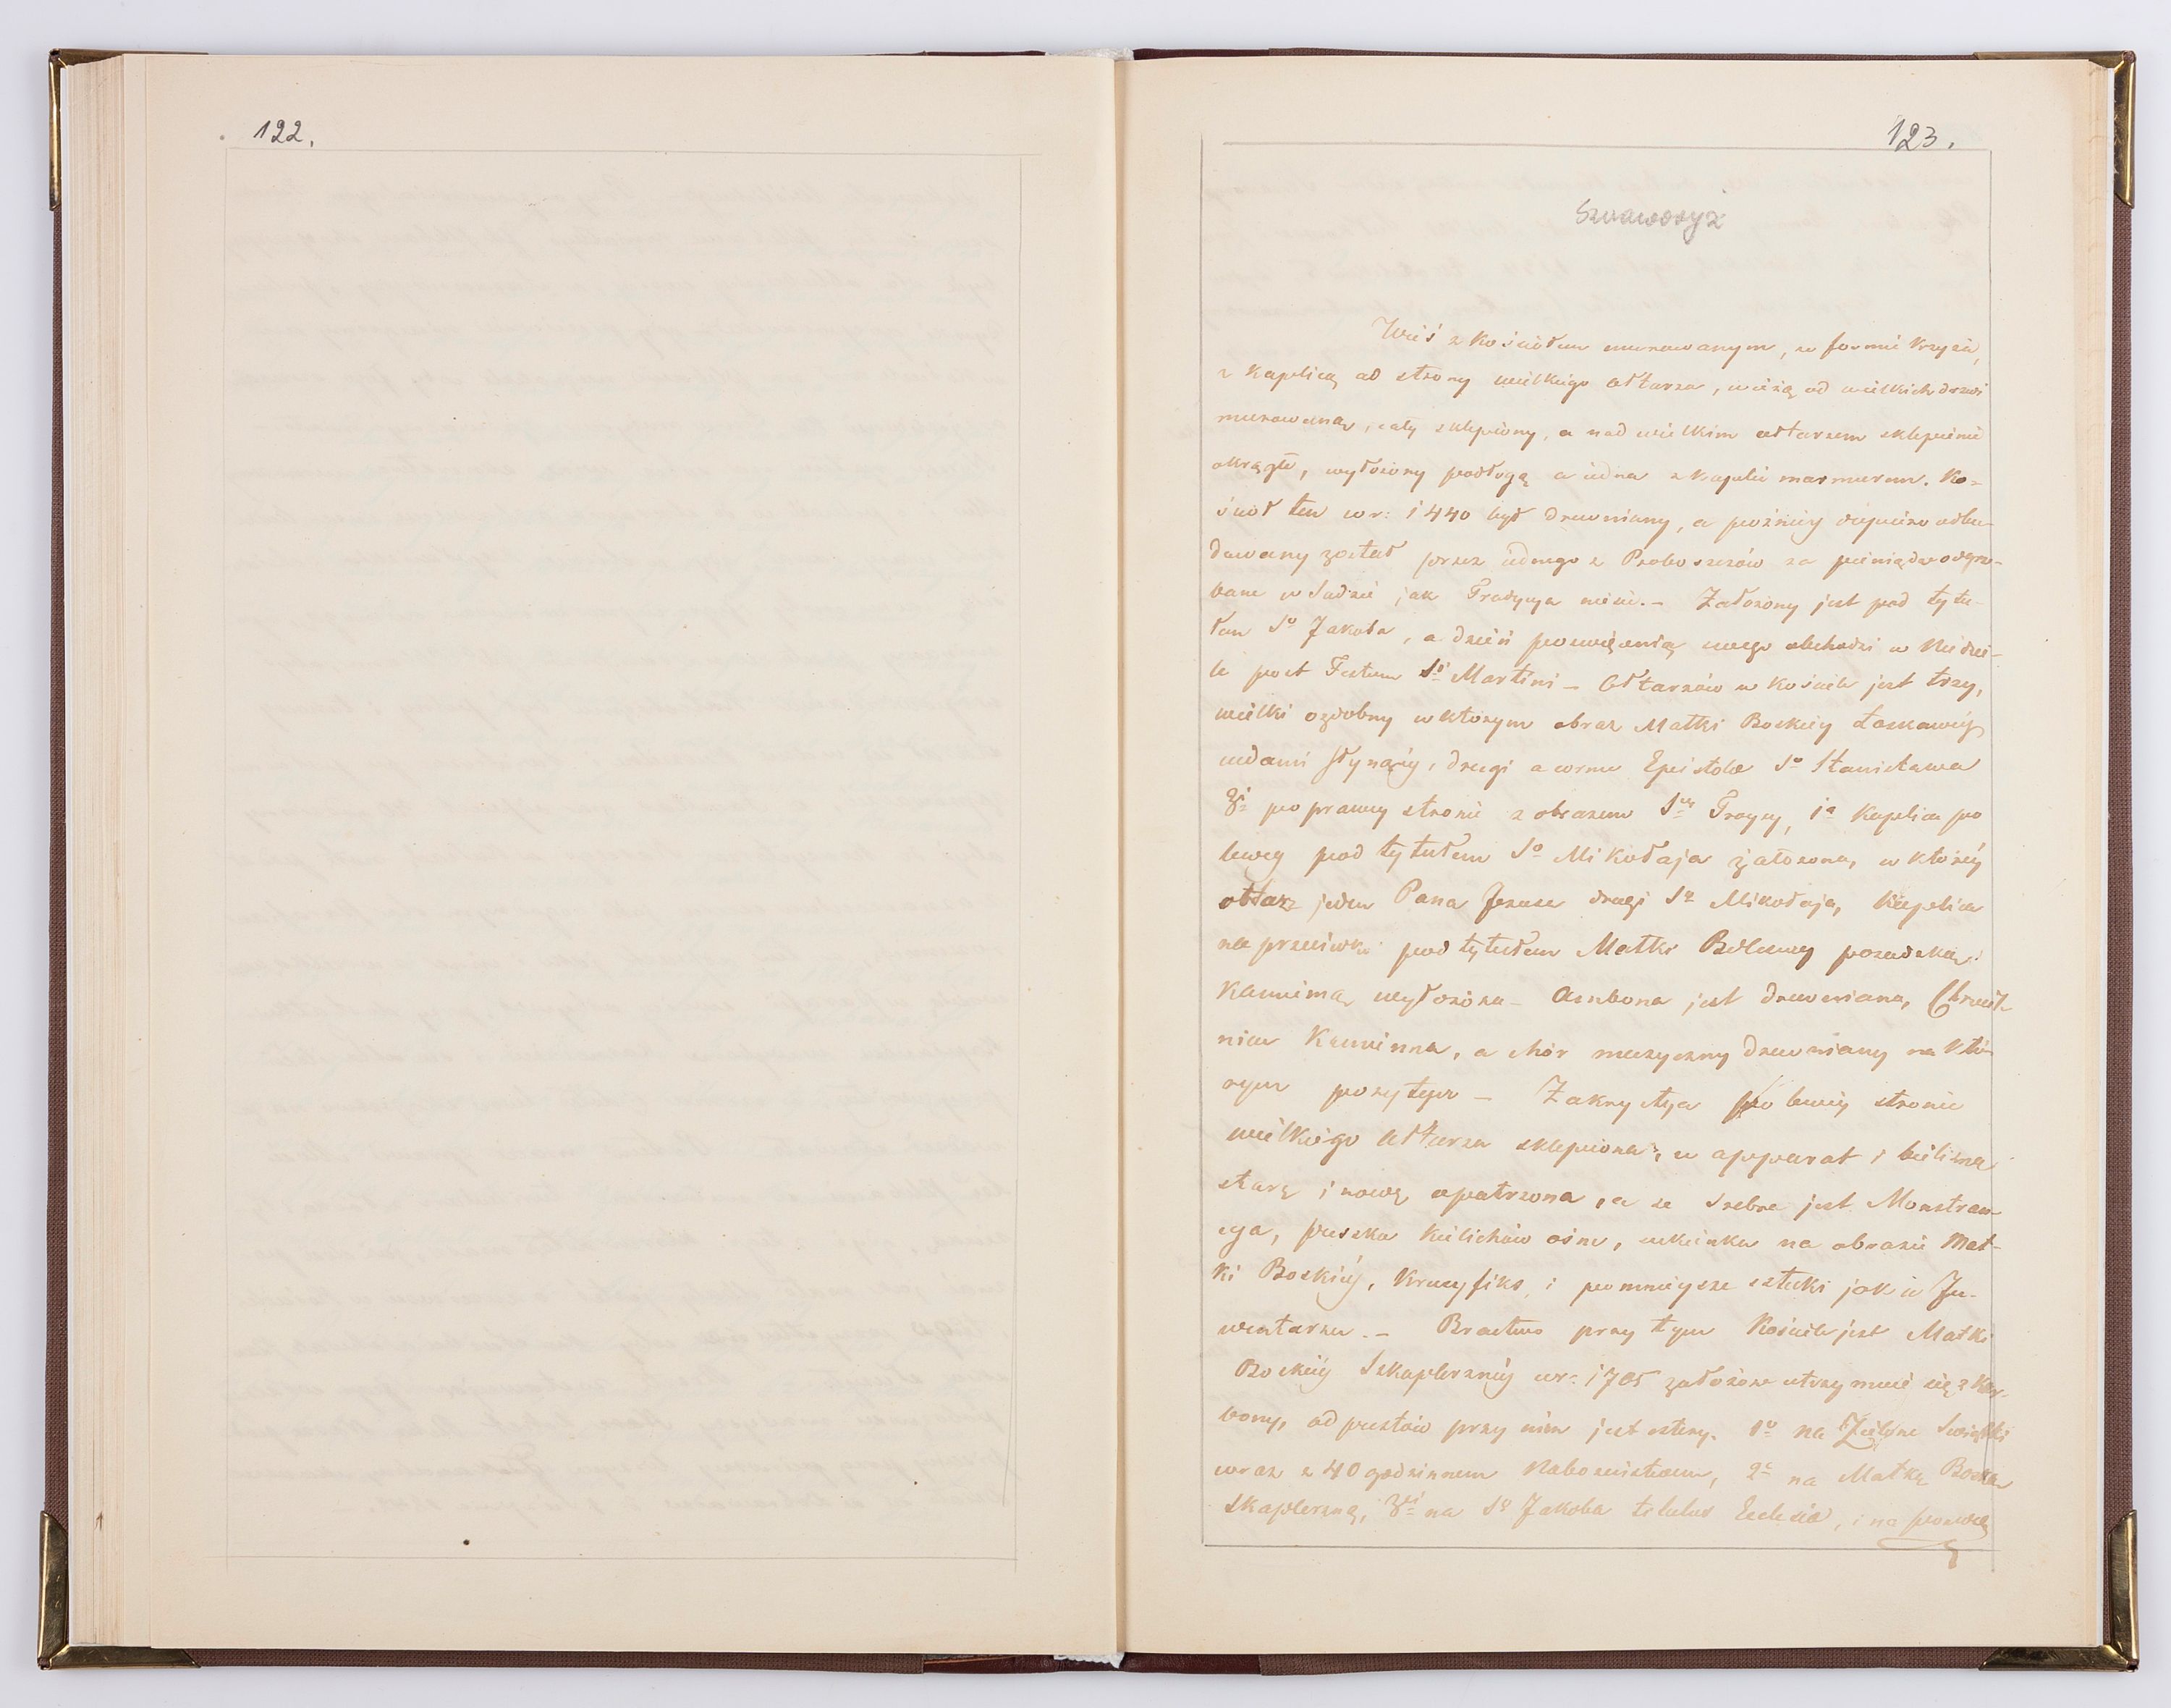 122.
123.
Wieś z kościołem murowanym, w formie krzyża,
z kaplicą od strony wielkiego ołtarza, wieżą od wielkich drzwi
murowaną, cały sklepiony, a nad wielkim ołtarzem sklepienie
okrągłe, wyłożony podłogą a iedna z kaplic marmurem. Ko-
ścioł ten w r: 1440 był drewniany, a poźniey odbu-
dowany został przez iednego z Proboszczów za pieniądze
jak Tradycya niesie. – Założony jest pod tytu-
łem So Jakoba, a dzień poswięcenia swego obchodzi w Niedzie-
le post Festum Si Martini – Ołtarzów w kościele jest trzy,
wielki ozdobny w którym obraz Matki Boskiey Łaskawéy
cudami słynącéy, drugi a cornu Epistolæ So Stanisława
3i po prawey stronie z obrazem Sey Troycy, 1a Kaplica po
lewey pod tytułem So Mikołaja założona, w któréy
ołtarz jeden Pana Jezusa drugi So Mikołaja, Kaplica
na przeciwko pod tytułem Matki Bolesney posadzką
kamienną wyłożona – Ambona jest drewniana, Chrzciel-
nica Kamienna, a chór muzyczny drewniany na któ-
rym pozytyw – Zakrystya po lewéy stronie
wielkiego ołtarza sklepiona, w apparat i bieliznę
starą i nową opatrzona, a ze srebra jest Monstran-
cya, puszka kielichów ośm, sukienka na obrazie Mat-
ki Boskiéy, Krucyfiks, i pomnieysze sztuki jak w In-
wentarzu. – Bractwo przy tym Kościele jest Matki
Boskiéy Szkaplerznéy w r: 1705 założone utrzymuie się z kar-
bony, odpustów przy nim jest cztery. 1o na Zielone Swiątki
wraz z 40 godzinnem Nabożeństwem, 2e na Matkę Boską
Skaplerzną, 3ci na So Jakoba titulus Ecclesiæ, i na poswię